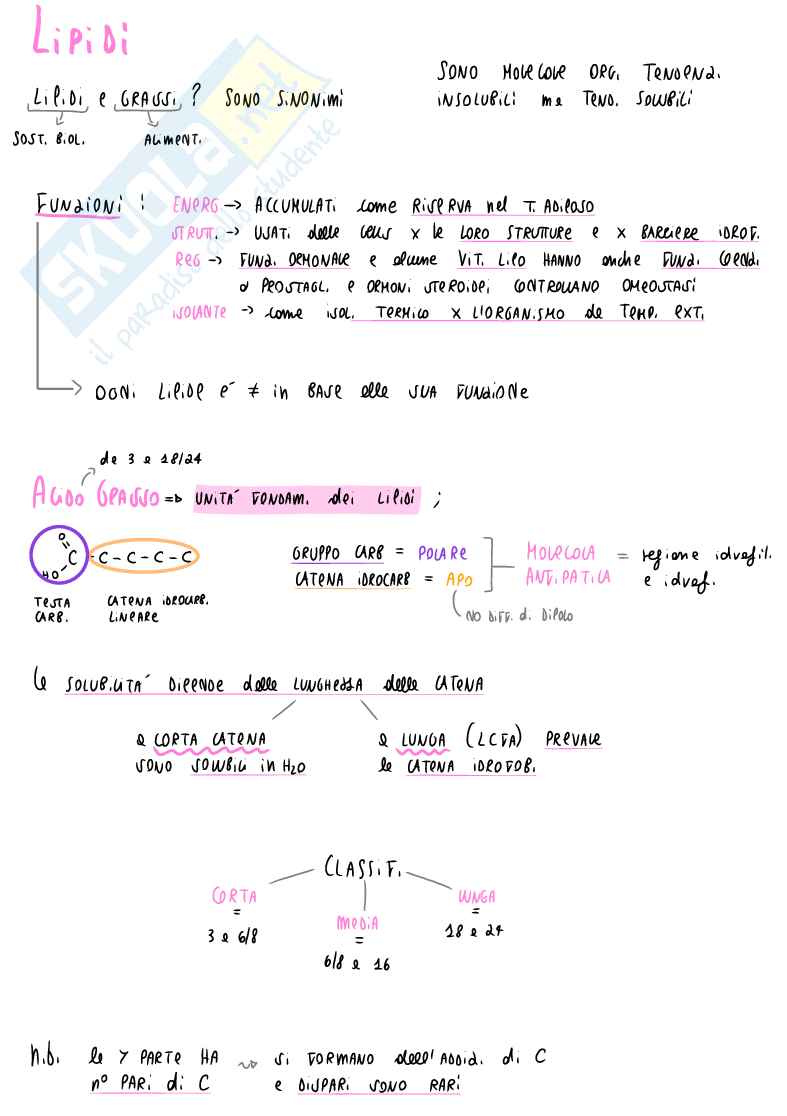 LiPiDi
SONO MOLECOLE ORG. TENDENZ.
INSOLUBILI ma TEND. SOLUBILI
LIPIDI e GRASSI ? SONO SINONIMI
SOST. BIOL. ALIMENT.
FUNZIONI : ENERG → ACCUMULATI come RISERVA nel T. ADIPOSO
STRUT. → USATI dalle CELLS x le LORO STRUTTURE e x BARRIERE IDROF.
REG → FUNZ. ORMONALE e alcune VIT. LIPO HANNO anche FUNZ.
PROSTAGL. e ORMONI STEROIDEI CONTROLLANO OMEOSTASI
ISOLANTE → come ISOL. TERMICO x L'ORGANISMO da TEMP. EXT.
OGNI LIPIDE è ≠ in BASE alla SUA FUNZIONE
da 3 a 18/24
ACIDO GRASSO => UNITA' FONDAM. dei LIPIDI ;
O
HO - C - C - C - C - C
TESTA CARB. CATENA IDROCARB. LINEARE
GRUPPO CARB = POLARE
CATENA IDROCARB = APO
NO DIFF. di DIPOLO
MOLECOLA ANFIPATICA = regione idrofil. e idrof.
la SOLUBILITA' DIPENDE dalla LUNGHEZZA della CATENA
a CORTA CATENA
SONO SOLUBILI in H2O
a LUNGA (LCFA) PREVALE
la CATENA IDROFOB.
CLASSIF.
CORTA
=
3 a 6/8
MEDIA
=
6/8 a 16
LUNGA
=
18 a 24
n.b. la > PARTE HA
n° PARI di C
si FORMANO dall'ADDIZ. di C
e DISPARI SONO RARI
SKUOLA.net
il paradiso dello studente